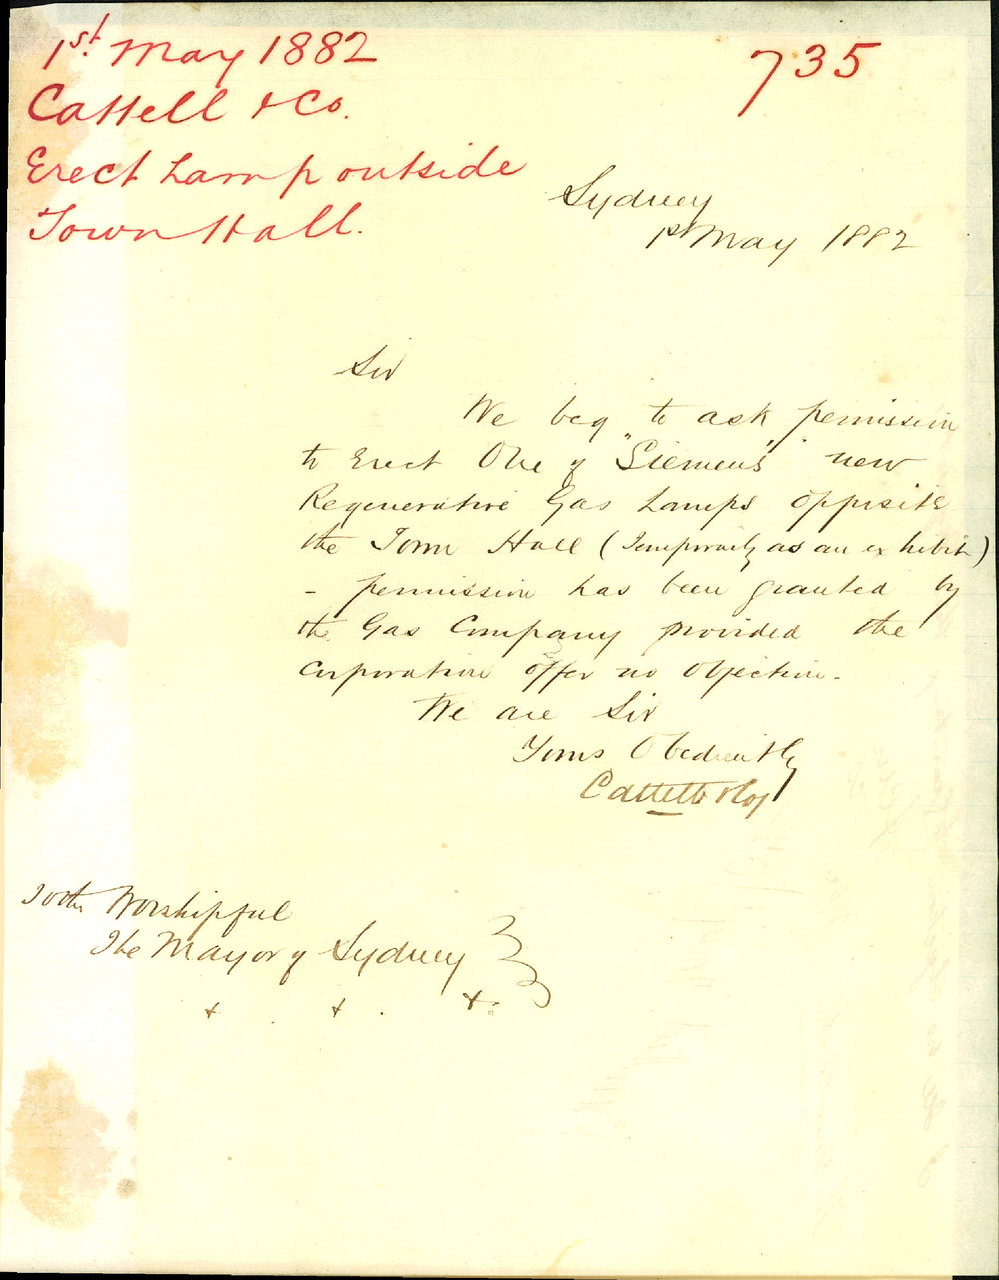 1st May 1882
735
Cattell & Co.
Erect Lamp outside
Town Hall.
Sydney
1st May 1882
Sir
We beg to ask permission
to Erect One of "Siemens" new
Regenerative Gas Lamps opposite
the Town Hall (Temporarily as an exhibit)
- permission has been granted by
the Gas Company provided the
Corporation offer no objection.
We are Sir
Yours Obediently
Cattell & Co
To the Worshipful
The Mayor of Sydney
& . & . &c